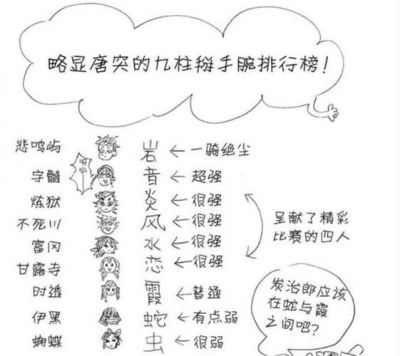 略显唐突的九柱掰手腕排行榜!
悲鸣屿 岩 ← 一骑绝尘
宇髓 音 ← 超强
炼狱 炎 ← 很强
不死川 风 ← 很强
富冈 水 ← 很强
甘露寺 恋 ← 很强
时透 霞 ← 普通
伊黑 蛇 ← 有点弱
蝴蝶 虫 ← 很弱
呈献了精彩
比赛的四人
炭治郎应该
在蛇与霞
之间吧?